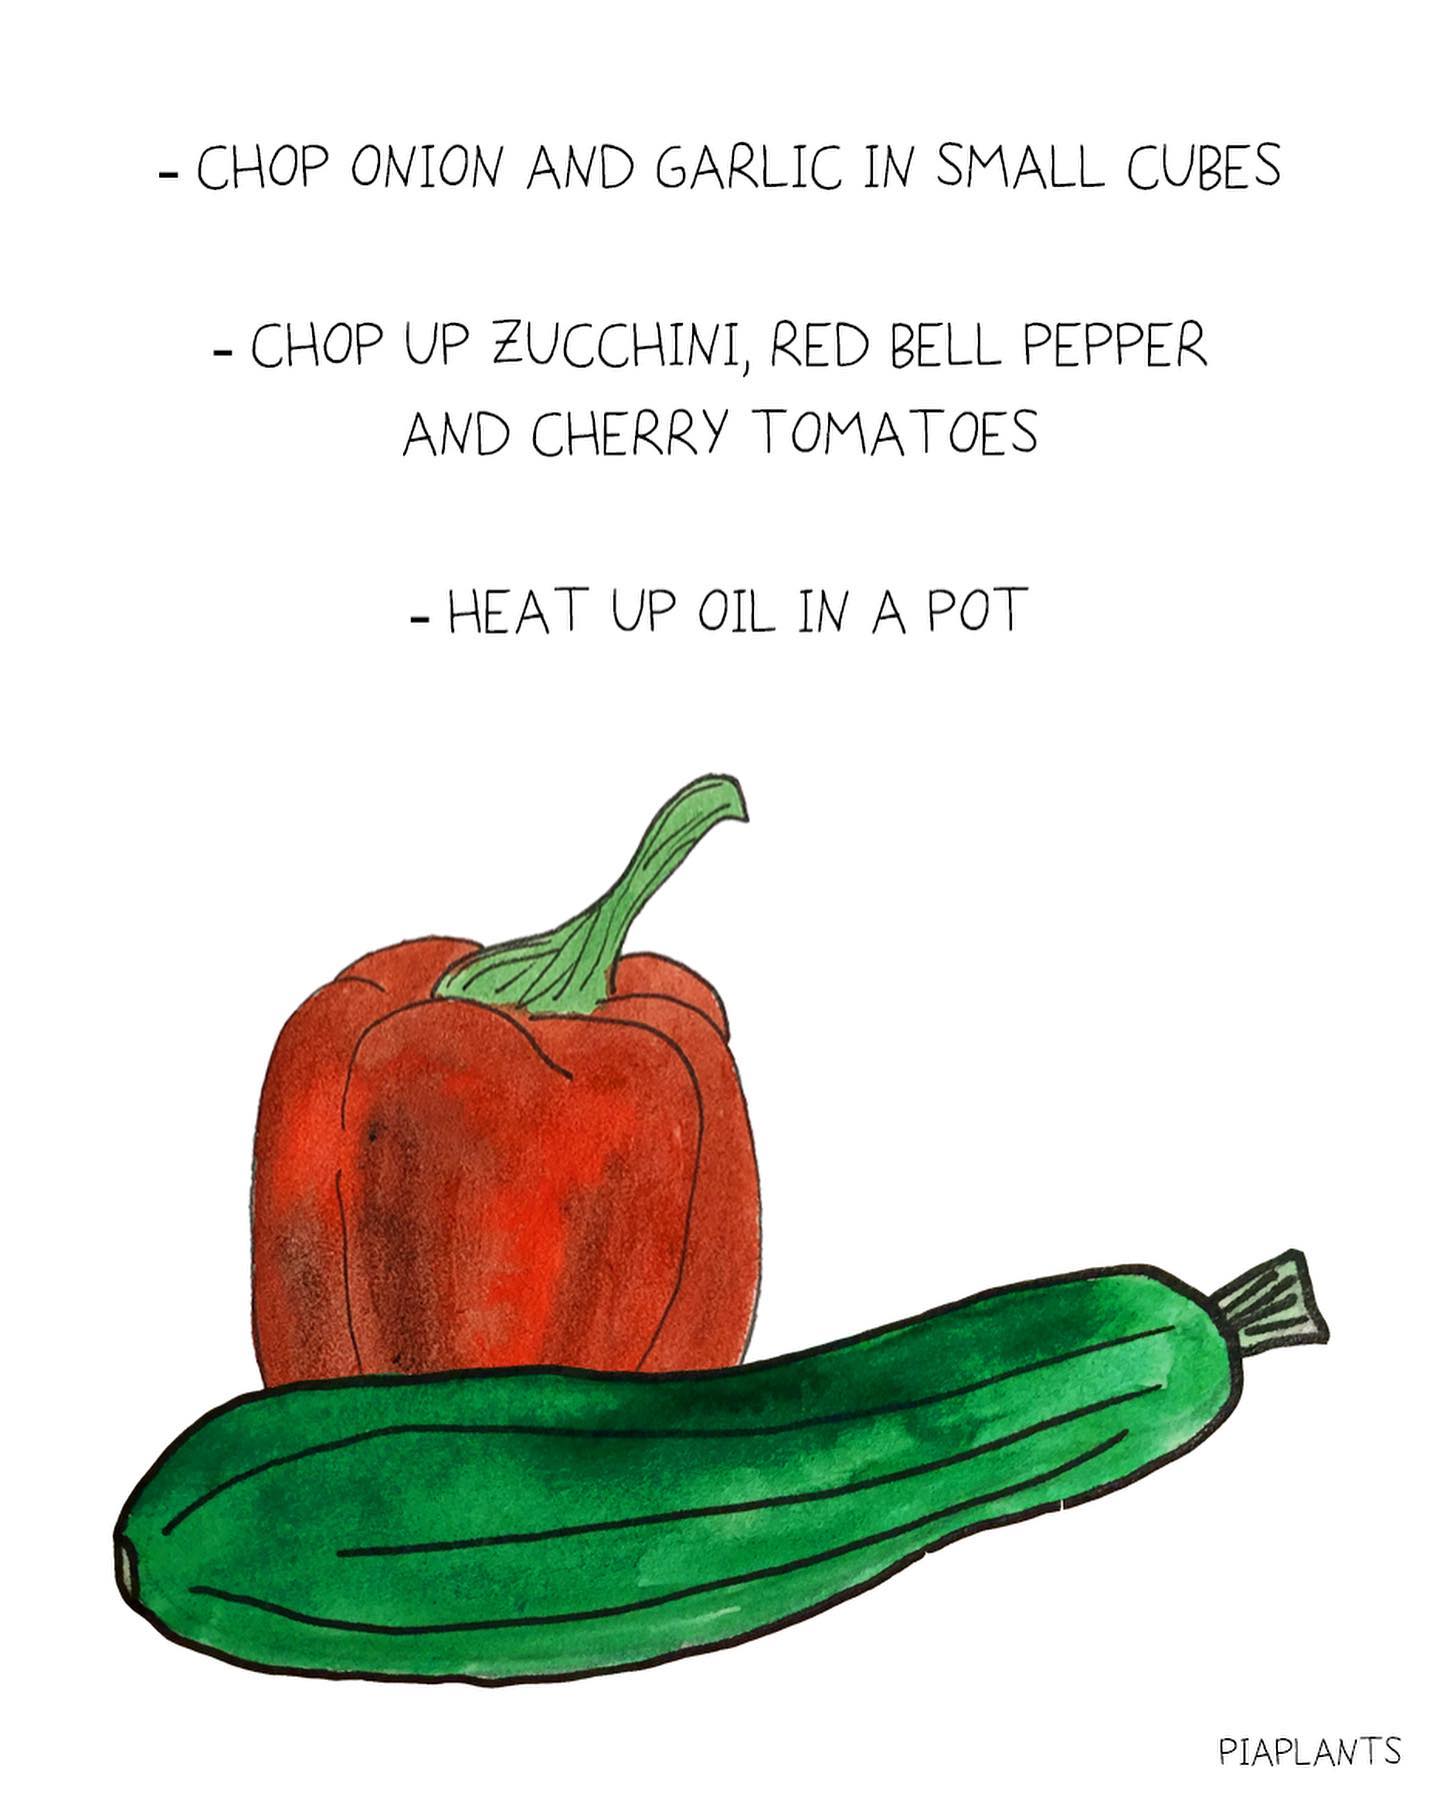 - CHOP ONION AND GARLIC IN SMALL CUBES
- CHOP UP ZUCCHINI, RED BELL PEPPER
AND CHERRY TOMATOES
- HEAT UP OIL IN A POT
PIAPLANTS